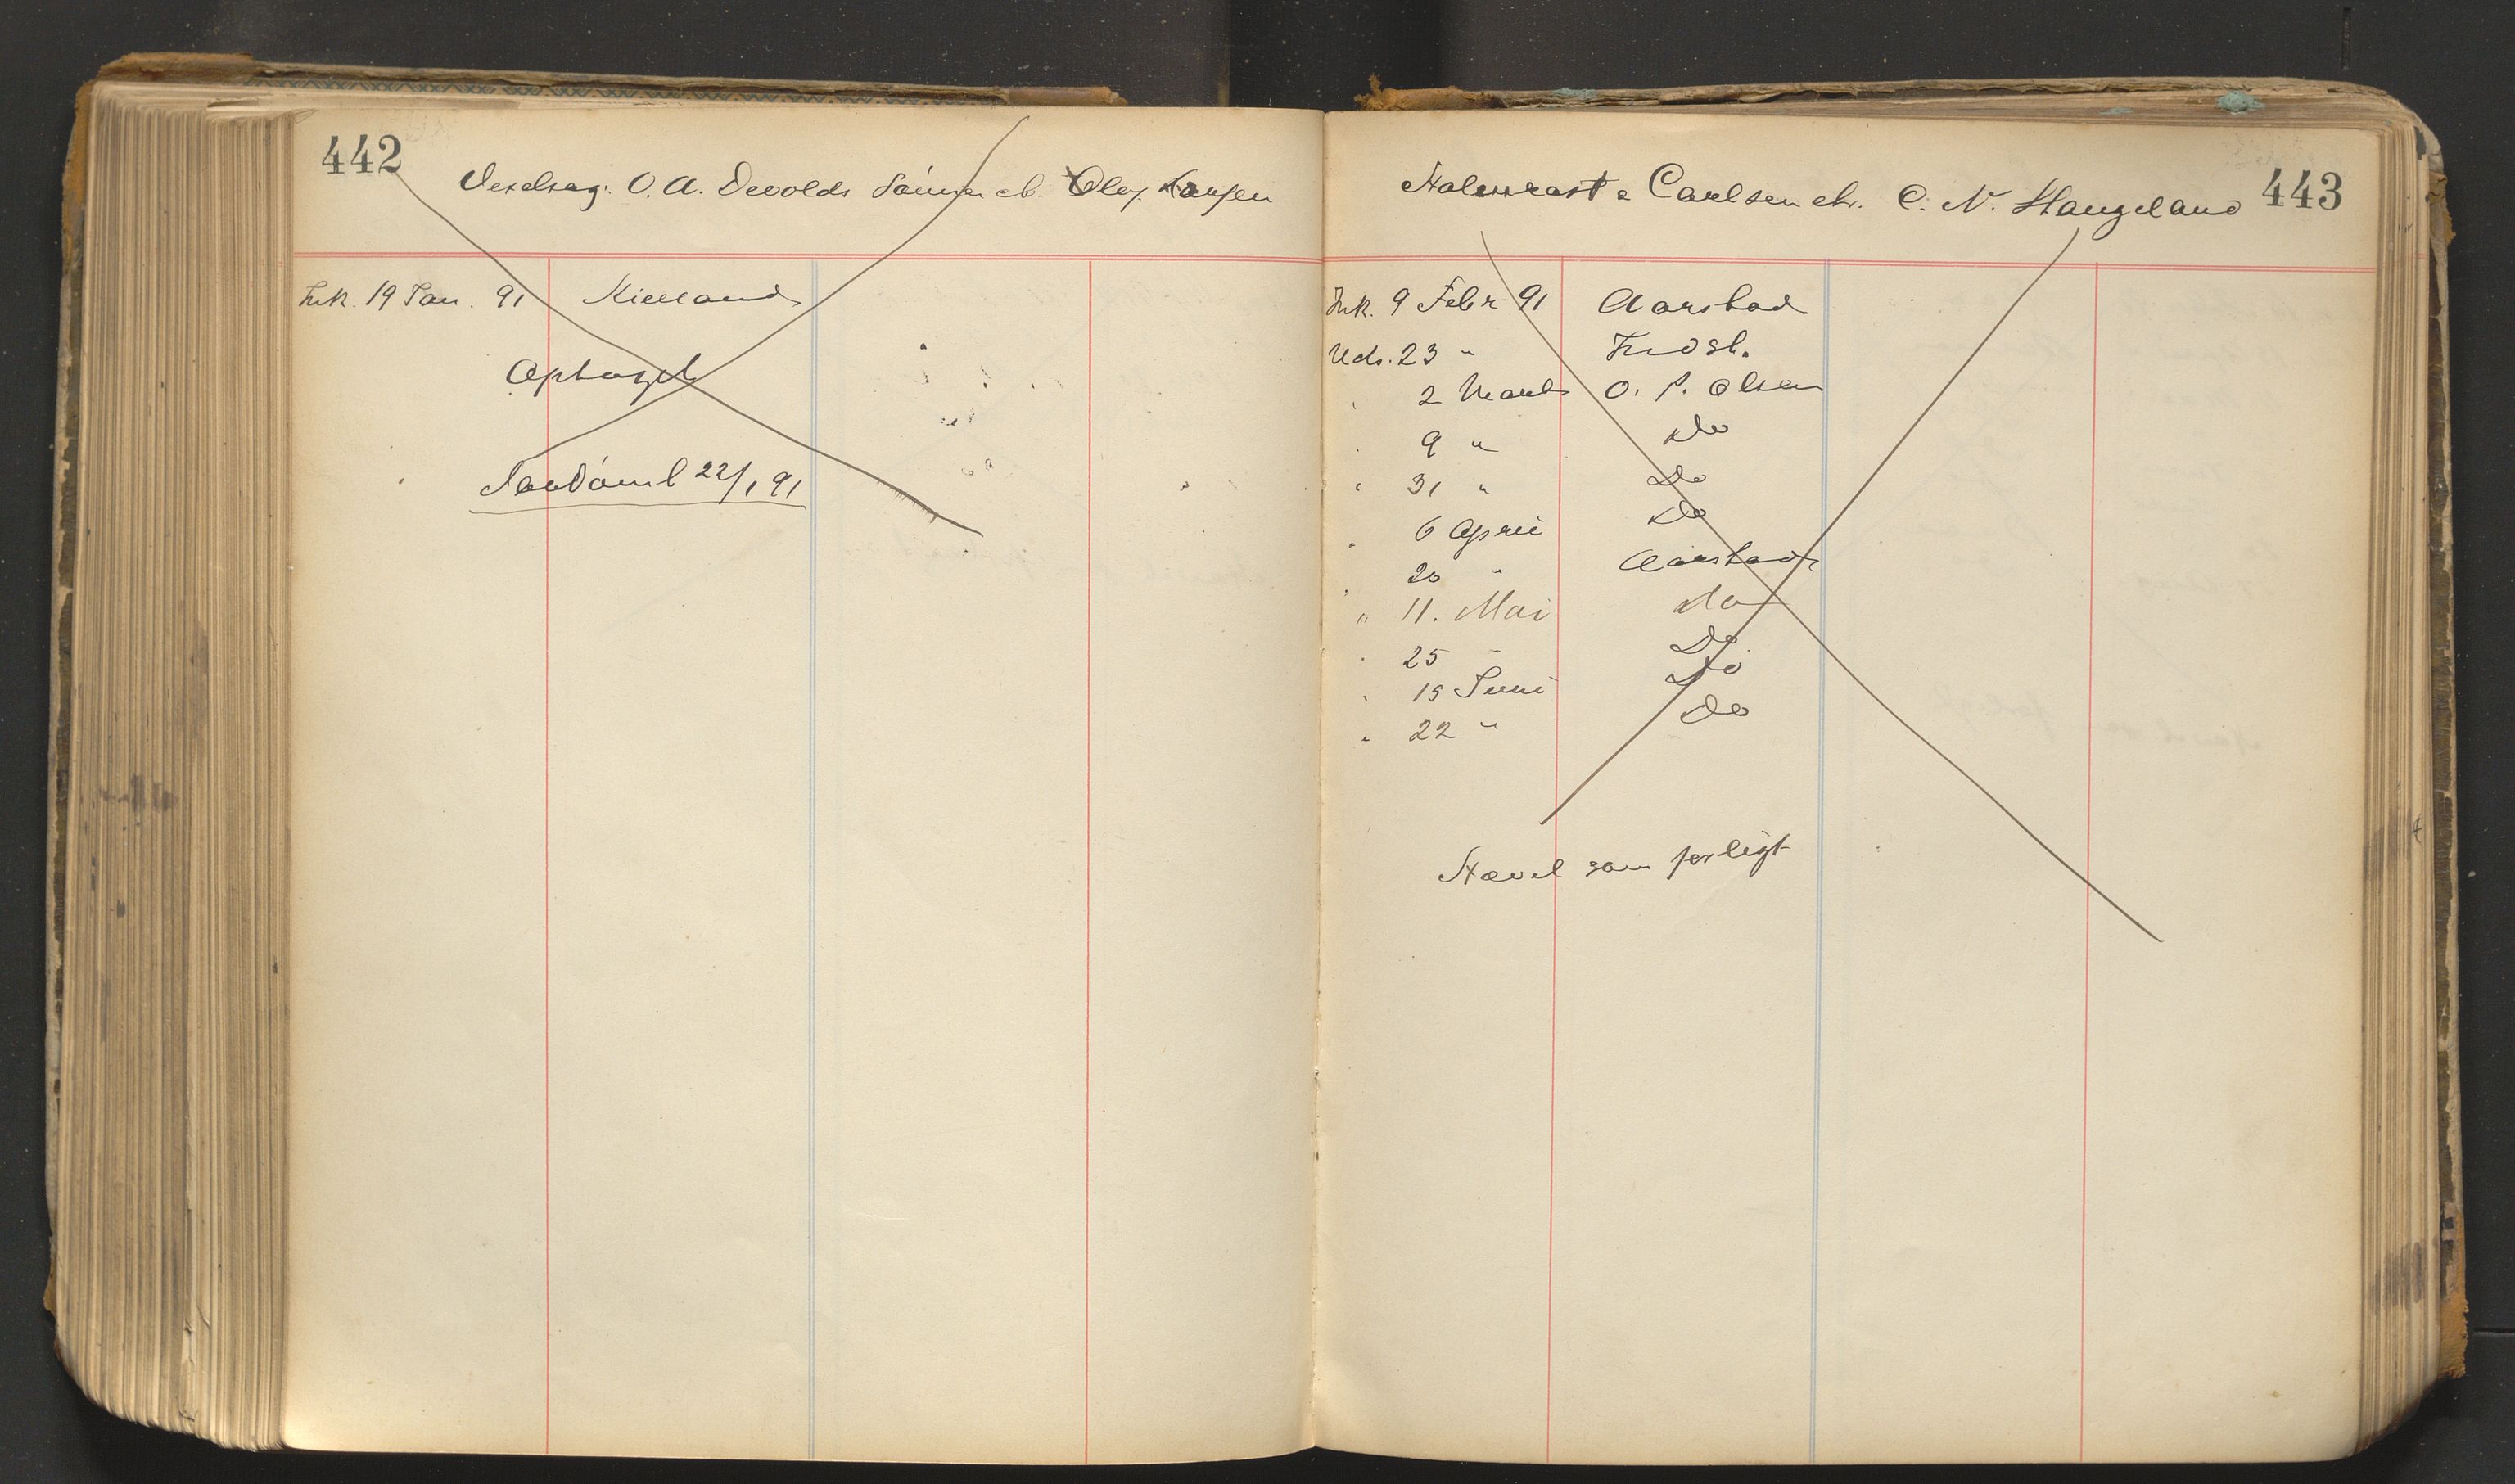 442
Vexelsag: O. A. Devolds Sönner ct. Olaf Larsen
Ink. 19 Jan. 91 Kielland
Optaget
91
443
Carlsen ctr. C. N. Haugeland
Ink. 9 Febr 91 Aarstad
Uds. 23 "
2 Marts O. P. Olsen
9 " Do
31 " Do
6 April Do
20 " Aarstad
" 11. Mai Do
25 " Do
15 Juni Do
22 " Do
Hævet som forligt